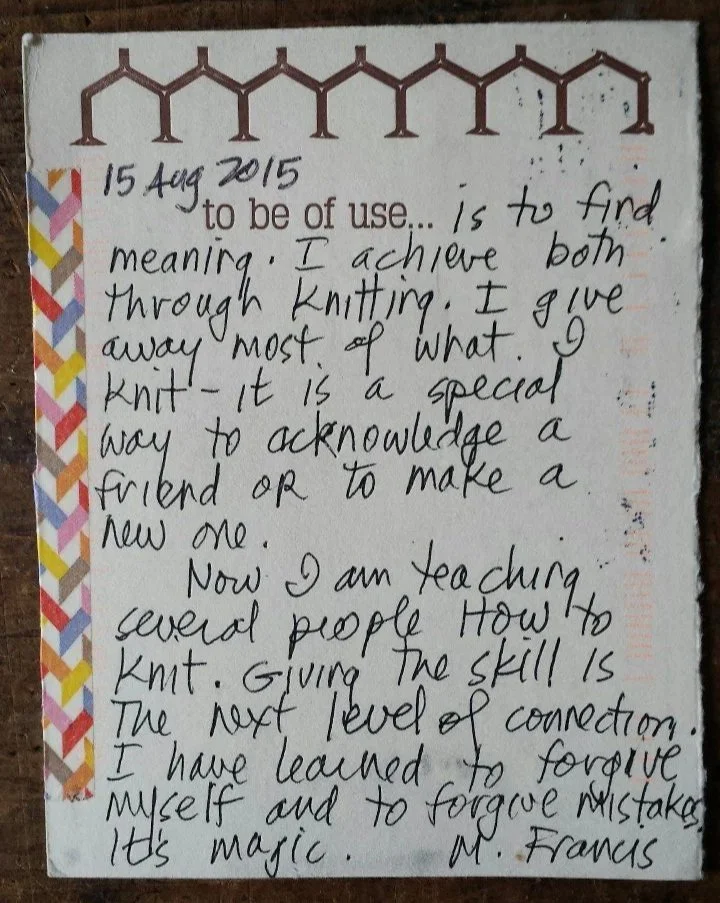 15 Aug 2015
to be of use... is to find
meaning. I achieve both
through knitting. I give
away most of what I
knit - it is a special
way to acknowledge a
friend or to make a
new one.
Now I am teaching
several people How to
knit. Giving the skill is
The next level of connection.
I have learned to forgive
myself and to forgive mistakes.
It's magic. M. Francis